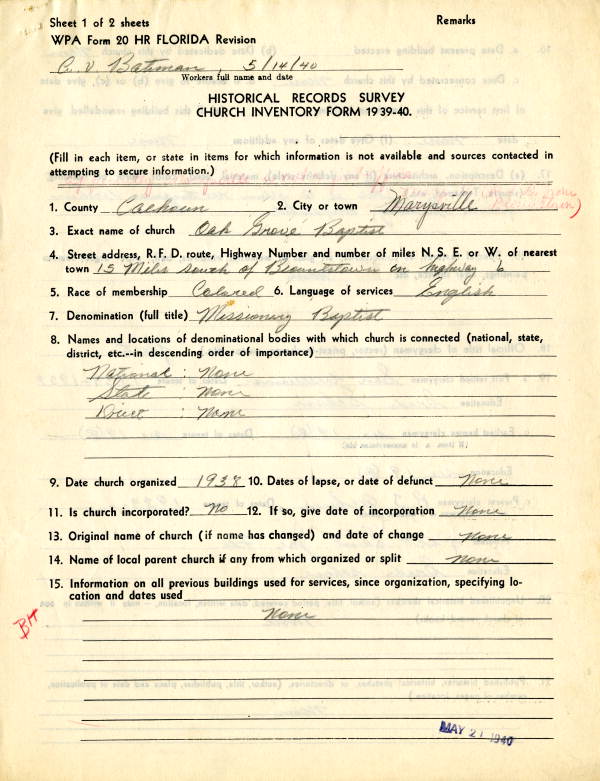 Sheet 1 of 2 sheets Remarks
WPA Form 20 HR FLORIDA Revision
5/14/40
Workers full name and date
HISTORICAL RECORDS SURVEY
CHURCH INVENTORY FORM 1939-40.
(Fill in each item, or state in items for which information is not available and sources contacted in
attempting to secure information.)
1. County Calhoun 2. City or town Marysville
3. Exact name of church Oak Grove Baptist
4. Street address, R. F. D. route, Highway Number and number of miles N. S. E. or W. of nearest
town 15 Miles south of Blountstown on highway 6
5. Race of membership Colored 6. Language of services English
7. Denomination (full title) Missionary Baptist
8. Names and locations of denominational bodies with which church is connected (national, state,
district, etc.--in descending order of importance)
National : None
State : None
: None
9. Date church organized 1938 10. Dates of lapse, or date of defunct None
11. Is church incorporated? No 12. If so, give date of incorporation None
13. Original name of church (if name has changed) and date of change None
14. Name of local parent church if any from which organized or split None
15. Information on all previous buildings used for services, since organization, specifying lo-
cation and dates used
None
BH
MAY 21 1940